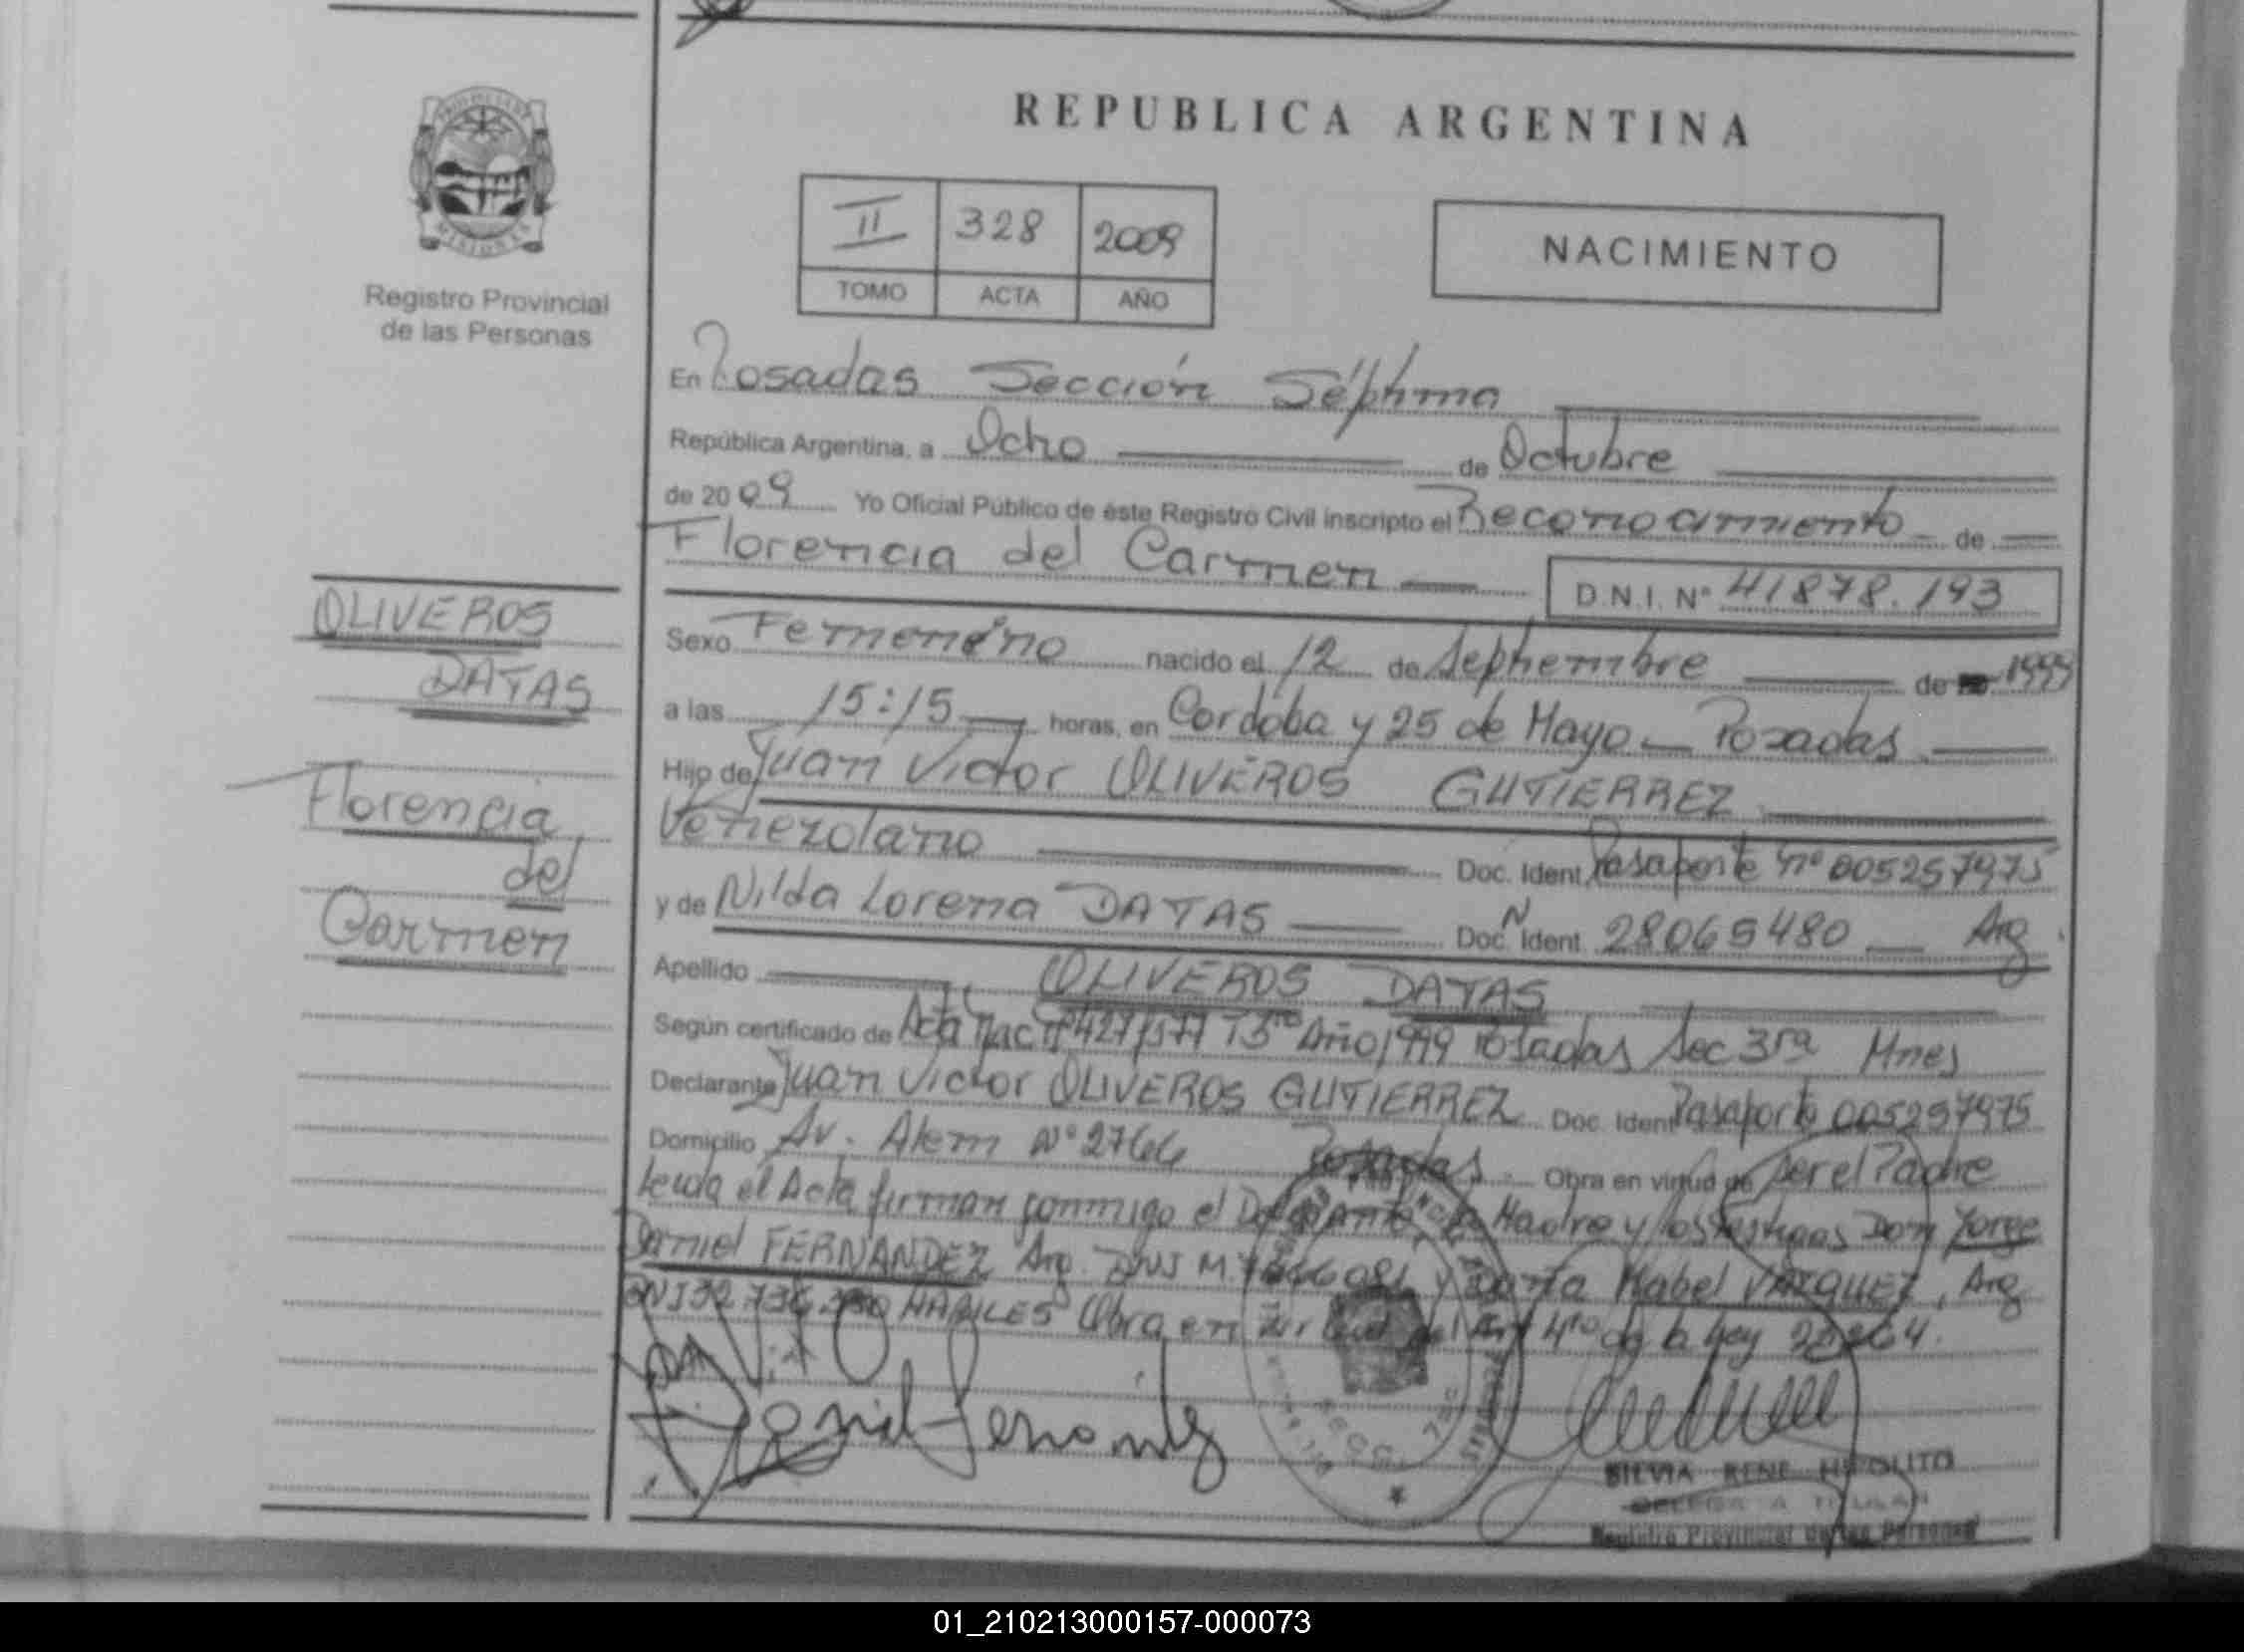 REPUBLICA ARGENTINA
MISIONES
Registro Provincial
de las Personas
II 328 2009
TOMO ACTA AÑO
NACIMIENTO
En Posadas Sección Séptima
República Argentina, a Ocho de Octubre
de 2009 Yo Oficial Público de éste Registro Civil inscripto el Reconocimiento de
Florencia del Carmen D.N.I. Nº 41878.193
OLIVEROS
DATAS
Florencia
del
Carmen
Sexo Femenino nacido el 12 de Septiembre de 1999
a las 15:15 horas, en Cordoba y 25 de Mayo Posadas
Hijo de Juan Victor OLIVEROS GUTIERREZ
Venezolano Doc. Ident Pasaporte nº 005257975
y de Nilda Lorena DATAS Doc. Ident. 28065480 Arg
Apellido OLIVEROS DATAS
Según certificado de Acta Nac nº 427/577 T3ro Año 1999 Posadas Sec 3ra Mnes
Declarante Juan Victor OLIVEROS GUTIERREZ Doc. Ident Pasaporte 005257975
Domicilio Av. Alem Nº 2766 Posadas Obra en virtud de ser el Padre
Leida el Acta firman conmigo el la Madre y los testigos Don Jorge
Daniel FERNANDEZ Arg. DNI M. y Mabel VAZQUEZ, Arg
DNI 32 HABILES Obra en Virtud del Art 4to de la Ley
SILVIA RENE HIPOLITO
DELEGADA TITULAR
Registro Provincial de las Personas
01_210213000157-000073